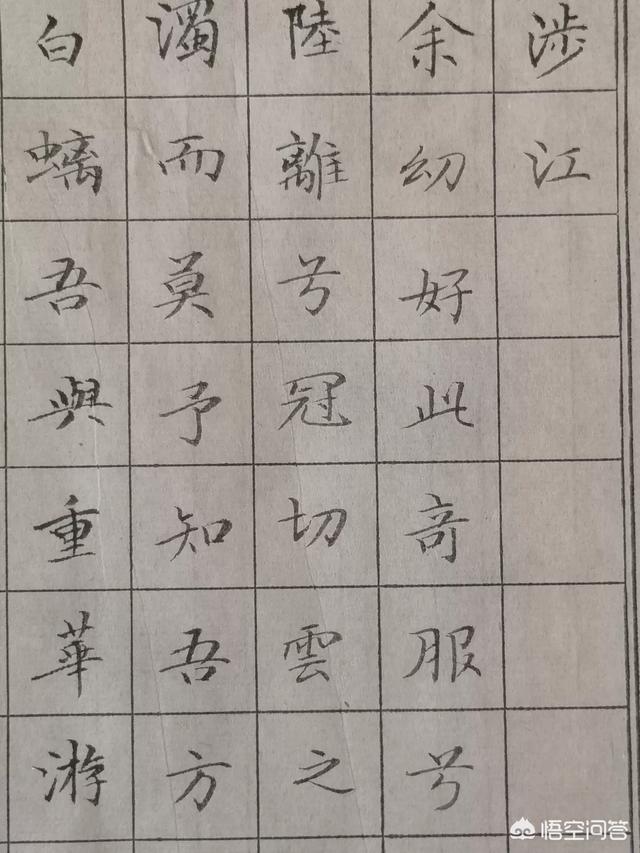 涉江
余幼好此奇服兮
陸離兮冠切雲之
濁而莫予知吾方
白螭吾與重華游
悟空问答